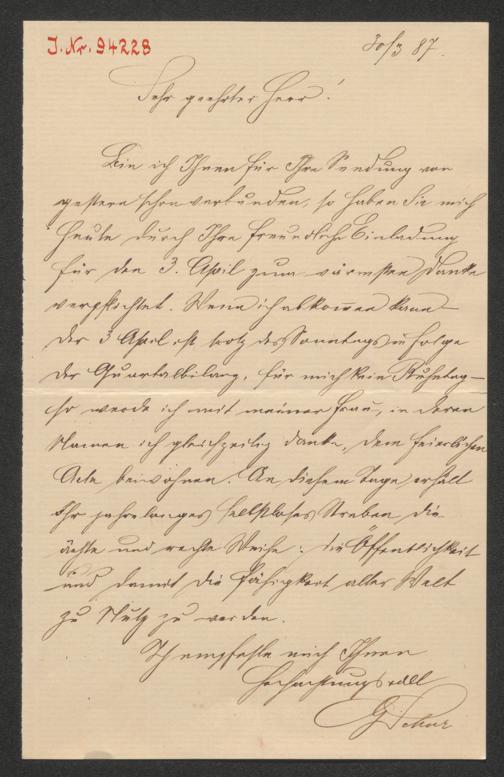 J. Nr. 94228
30/3 87.
Sehr geehrter Herr!
Bin ich Ihnen für Ihre Sendung von
gestern schon verbunden, so haben Sie mich
heute durch Ihre freundliche Einladung
für den 3. April zum wärmsten Danke
verpflichtet. Wenn ich abkommen kann –
der 3 April ist trotz des Sonntags in Folge
der Quartalbilanz, für mich kein Ruhetag –
so werde ich mit meiner Frau, in deren
Namen ich gleichzeitig danke, dem feierlichen
Acte beiwohnen. An diesem Tage erhält
Ihr jahrelanges selbstloses Streben die
ächte und rechte Weihe: die Öffentlichkeit
und damit die Fähigkeit aller Welt
zu Nutz zu werden.
Ich empfehle mich Ihnen
hochachtungsvoll